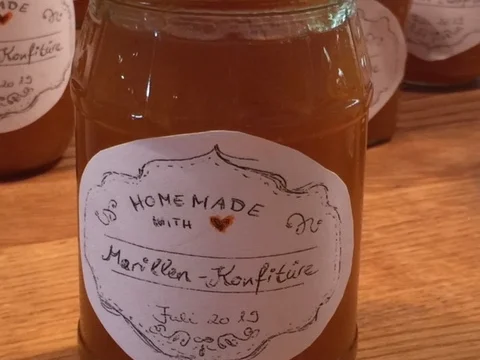 MADE
Konfitüre
2019
HOMEMADE
WITH
Marillen-Konfitüre
Juli 2019